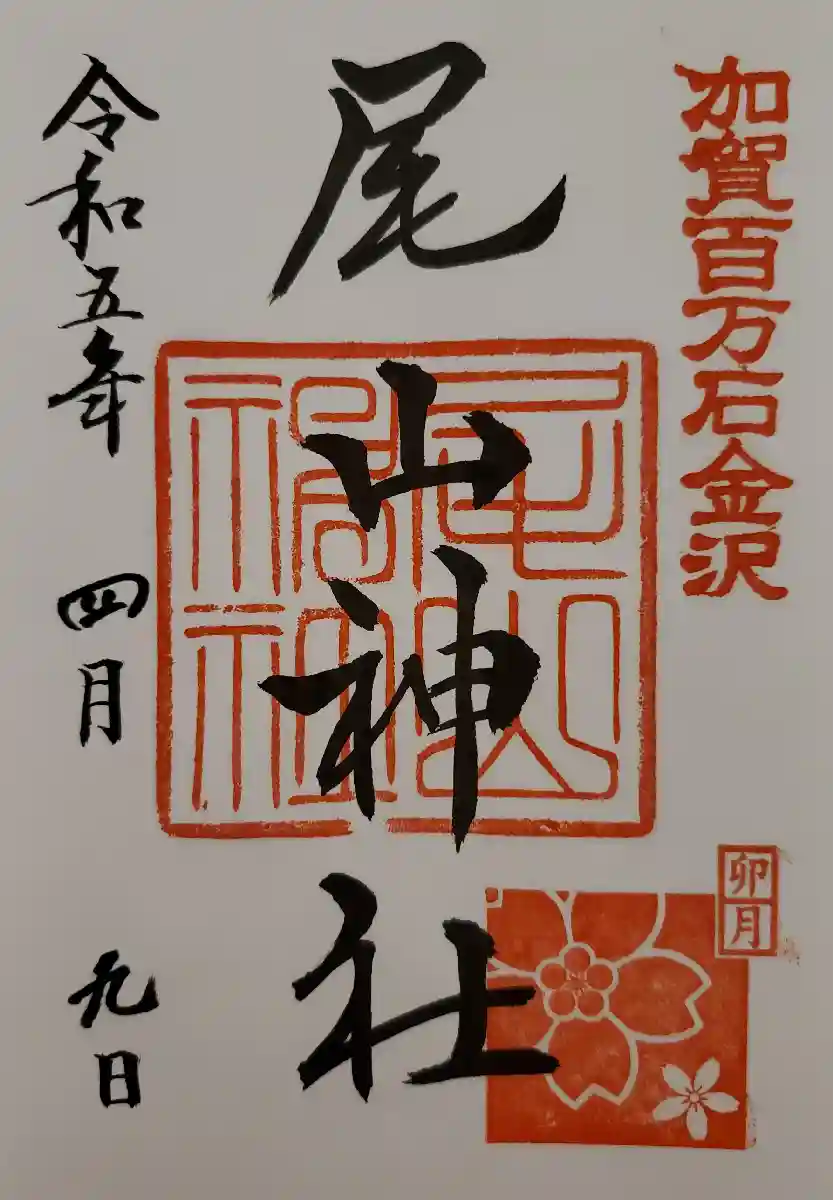 加賀百万石金沢
尾山神社
尾山神社
卯月
令和五年 四月 九日